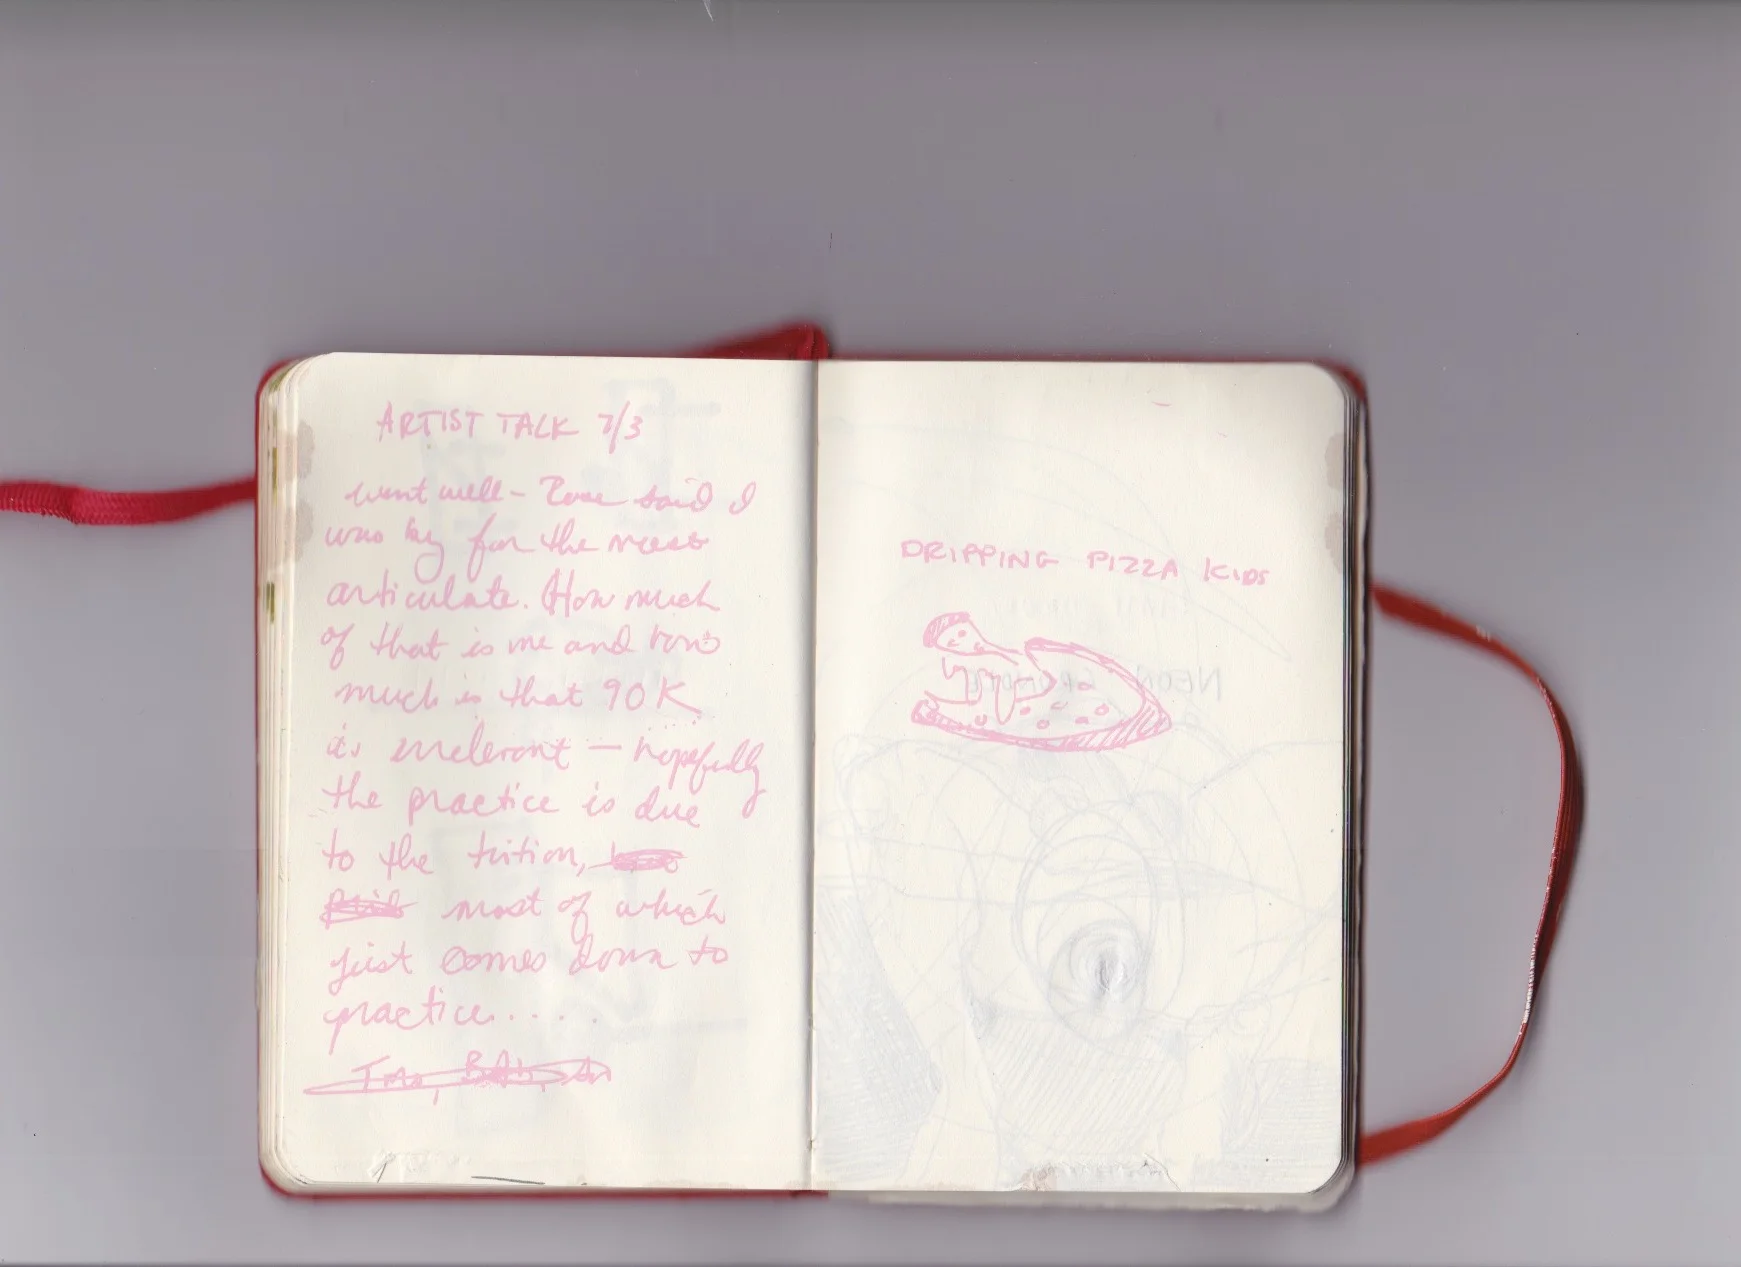 ARTIST TALK 7/3
went well – said I
was by far the most
articulate. How much
of that is me and how
much is that 90K
its irrelevant — hopefully
the practice is due
to the tuition,
most of which
just comes down to
practice.....
DRIPPING PIZZA KIDS
NEON